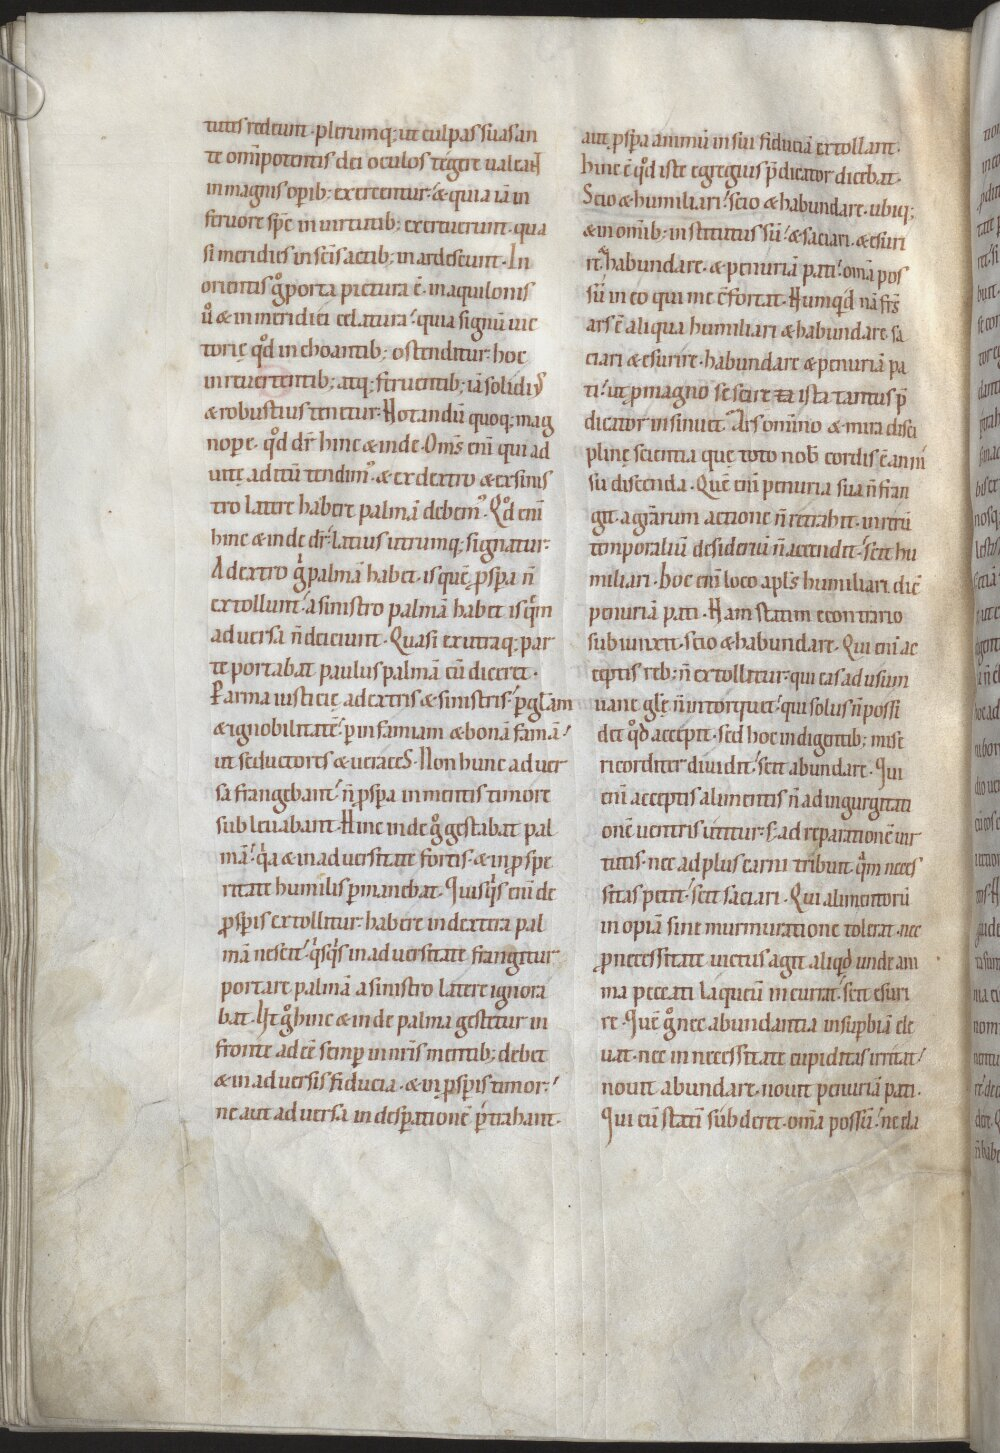 tutis redeunt· plerumq; ut culpas suas an
te om̅ipotentis dei oculos tegere ualeant
in magnis op̅ib; exercentur· & quia ia̅ in
feruore sp̅e in uirtutib; exercuerunt· qua
si meridies in sc̅is actib; inardescunt· In
orientis g̊ porta pictura e̅· in aquilonis
u̅o & in meridiei celatura· quia signu̅ uic
torię qd̊ in choantib; ostenditur· hoc
in reuertentib; atq; feruentib; ia̅ solidi᷒
& robustius tenetur· Notandu̅ quoq; mag
nope· qd̊ dr̅ hinc & inde· Om̅s eni̅ qui ad
uitę aditu̅ tendim᷒· & ex dextro & ex sinis
tro latere habere palma̅ debem᷒· Qd̊ eni̅
hinc & inde dr̅· latius utrumq; signatur·
A dextro g̊ palma̅ habet· is que̅ ꝓsꝑa n̅
extollunt· a sinistro palma̅ habet is qͣm
aduersa n̅ deiciunt· Quasi ex utraq; par
te portabat paulus palma̅ cu̅ diceret·
Ꝑ arma iusticię a dextris & sinistris· ꝑ gl̅am
& ignobilitate̅· ꝑ infamiam & bona̅ fama̅·
ut seductores & ueraces· Non hunc aduer
sa frangebant· n̅ ꝓsꝑa in mentis tumore
subleuabant· Hinc inde g̊ gestabat pal
ma̅· qͥa & in aduersitate fortis· & in ꝓspe
ritate humilis ꝑmanebat· Quisqͥs eni̅ de
ꝓsꝑis extollitur· habere in dextera pal
ma̅ nescit· qͥsqͥs in aduersitate frangitur
portare palma̅ a sinistro latere ignora
bat· Ut g̊ hinc & inde palma gestetur in
fronte adee̅ semꝑ in nr̅is mentib; debet
& in aduersis fiducia· & in ꝓsꝑis timor·
ne aut aduersa in desꝑatione̅ ꝑtrahant·
aut ꝓsꝑa animu̅ in sui fiducia̅ extollant·
hinc e̅ qd̊ iste egregius p̅dicator dicebat·
Scio & humiliari· scio & habundare· ubiq;
& in om̅ib; institutus su̅· & saciari· & esuri
re· habundare· & penuria̅ pati· om̅a pos
su̅ in eo qui me c̅fortat· Numqd̊ na̅ fr̅s
ars e̅ aliqua humiliari & habundare· sa
ciari & esurire· habundare & penuria̅ pa
ti· ut ꝓ magno se scire ista tantus p̅
dicator insinuet· Ars omnino & mira disci
plinę scientia quę toto nob̅ cordis e̅ anni
su discenda· Que̅ eni̅ penuria sua n̅ fran
git· a gr̅arum actione n̅ retrahit· in reru̅
temporaliu̅ desideriu̅ n̅ accendit· scit hu
miliari· hoc eni̅ loco apl̅s humiliari dic̅
penuria̅ pati· Nam statim econtrario
subiunxit· scio & habundare· Qui eni̅ ac
ceptis reb; n̅ extollitur· qui eas ad usum
uane gl̅ę n̅ intorquet· qui solus n̅ possi
det qd̊ accepit· sed hoc indigentib; mise
ricorditer diuidit· scit abundare· Qui
eni̅ acceptis alimentis n̅ ad ingurgitati
one̅ uentris utitur· s; ad reparatione̅ uir
tutis· nec ad plus carni tribuit· qͣm neces
sitas petit· scit saciari· Qui alimentoru̅
in opia̅ sine murmuratione tolerat· nec
ꝓ necessitate uictus agit aliqd̊ unde ani
ma peccati laqueu̅ incurrat· scit esuri
re· Que̅ g̊ nec abundantia in suꝑbia̅ ele
uat· nec in necessitate cupiditas irritat·
nouit abundare· nouit penuria̅ pati·
Qui cu̅ stati̅ subderet· om̅a possu̅· ne ela